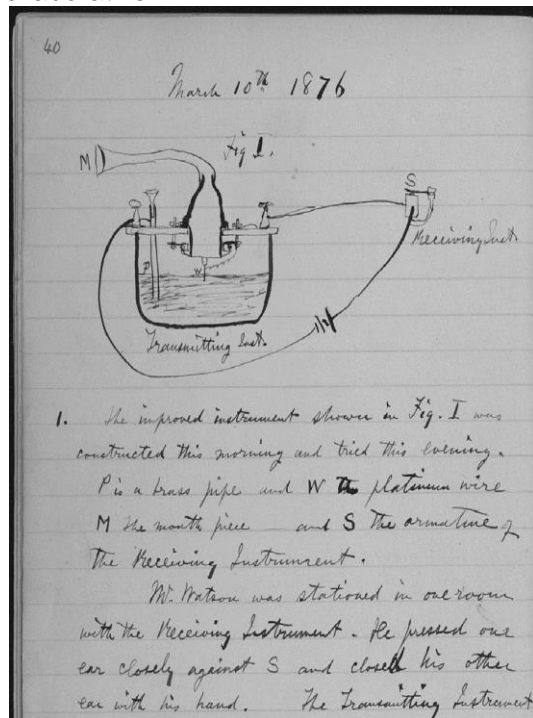 40
March 10th 1876
Fig I.
M
S
Receiving Inst.
P
W
Transmitting Inst.
1. The improved instrument shown in Fig. I was
constructed this morning and tried this evening.
P is a brass pipe and W the platinum wire
M the mouth piece and S the armature of
the Receiving Instrument.
Mr. Watson was stationed in one room
with the Receiving Instrument. He pressed one
ear closely against S and closed his other
ear with his hand. The Transmitting Instrument